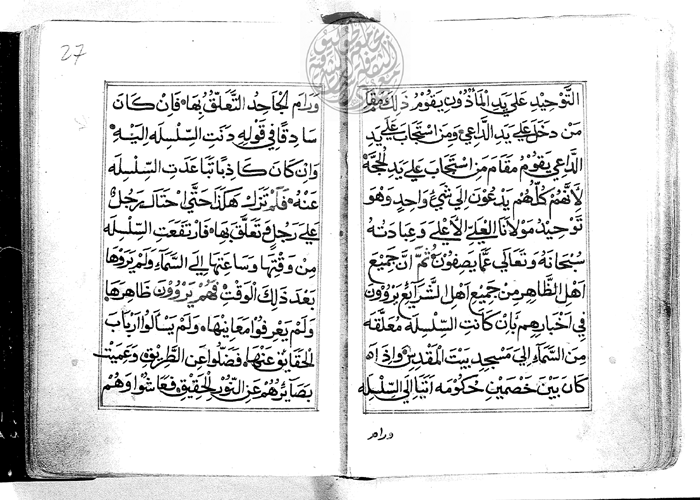 التَّوْحِيْدِ عَلَي يَدِ الْمَأْذُوْنِ يَقُوْمُ ذَلِكَ مَقَامَ
مَنْ دَخَلَ عَلَي يَدِ الدَّاعِي وَمَنِ اسْتَجَابَ عَلَي يَدِ
الدَّاعِي يَقُوْمُ مَقَامَ مَنِ اسْتَجَابَ عَلَي يَدِ الْحُجَّةِ
لِاَنَّهُمْ كُلُّهُمْ يَدْعُوْنَ اِلَي شَيْئٍ وَاحِدٍ وَهُوَ
تَوْحِيْدُ مَوْلَانَا الْعَلِيِّ الْاَعْلَي وَعِبَادَتُهُ
سُبْحَانَهُ وَتَعَالَي عَمَّا يَصِفُوْنَ ثُمَّ اِنَّ جَمِيْعَ
اَهْلِ الظَّاهِرِ مِنْ جَمِيْعِ اَهْلِ الشَّرَايِعِ يَرْوُوْنَ
فِي اَخْبَارِهِمْ بَانْ كَانَتِ السِّلْسِلَه مُعَلَّقَه
مِنَ السَّمَآءِ اِلَي مَسْجِدِ بَيْتِ الْمَقْدِسِ وَاِذَا
كَانَ بَيْنَ خَصْمَيْنِ حُكُوْمَه اَتَيَا اِلَي السِّلْسِلَه
ورام
27
وَرَامَ الْجَاحِدُ التَّعَلُّقَ بِهَا فَاِنْ كَانَ
صَادِقًا فِي قَوْلِهِ دَنَتِ السِّلْسِلَه اِلَيْهِ
وَاِنْ كَانَ كَاذِبًا تَبَاعَدَتِ السِّلْسِلَه
عَنْهُ فَلَمْ تَزَلْ هَكَذَا حَتَّي احْتَالَ رَجُلٌ
عَلَي رَجُلٍ تَعَلَّقَ بِهَا فَارْتَفَعَتِ السِّلْسِلَه
مِنْ وَقْتِهَا وَسَاعَتِهَا اِلَي السَّمَآءِ وَلَمْ يَرَوْهَا
بَعْدَ ذَلِكَ الْوَقْتِ فَهُمْ يَرْوُوْنَ ظَاهِرَهَا
وَلَمْ يَعْرِفُوْا مَعَانِيْهَا وَلَمْ يَسْالُوْا اَرْبَابَ
الْحَقَايِقِ عَنْهَا فَضَلُّوْا عَنِ الطَّرِيْقِ وَعَمِيَتْ
بَصَايِرُهُمْ عَنِ النُّوْرِ الْحَقِيْقِي فَعَاشُوْا وَهُمْ